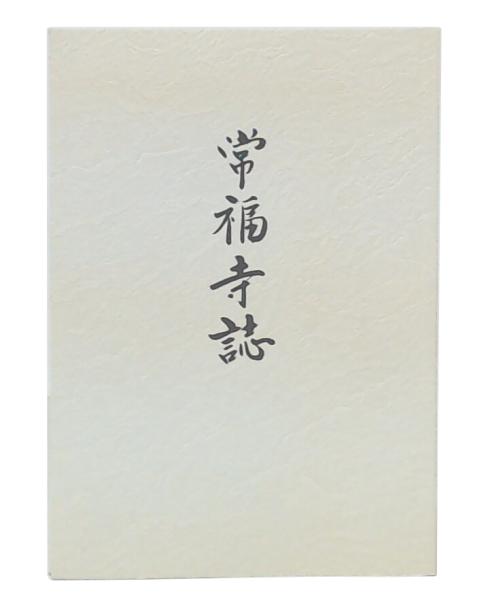 常福寺誌